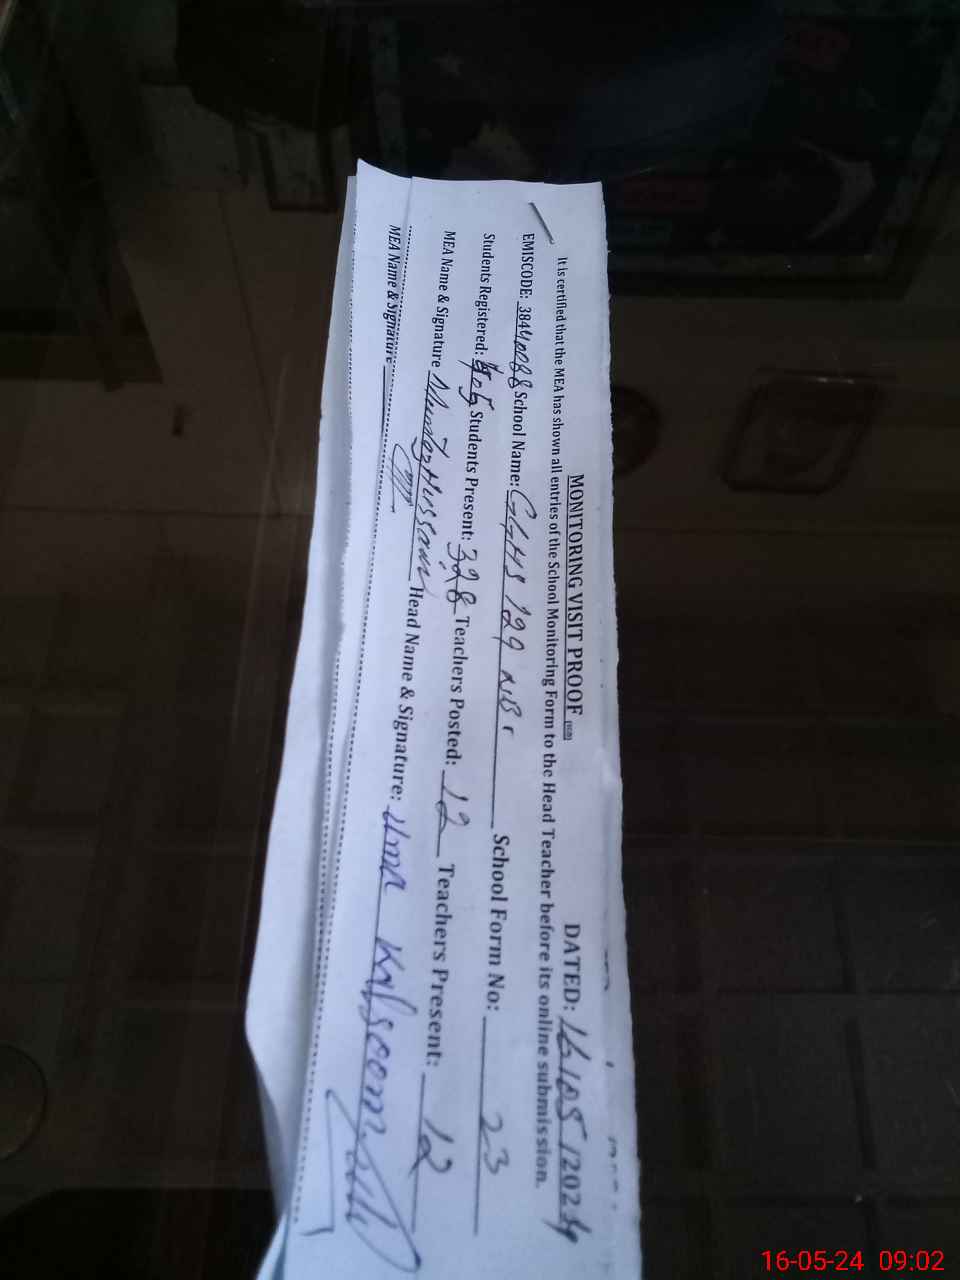 MONITORING VISIT PROOF DATED: 16/05/2024
It is certified that the MEA has shown all entries of the School Monitoring Form to the Head Teacher before its online submission.
EMISCODE: 38440088 School Name: GGHS 129 NB School Form No: 23
Students Registered: 405 Students Present: 328 Teachers Posted: 12 Teachers Present: 12
MEA Name & Signature Hussain Head Name & Signature: Uma Kalsoom
MEA Name & Signature
16-05-24 09:02